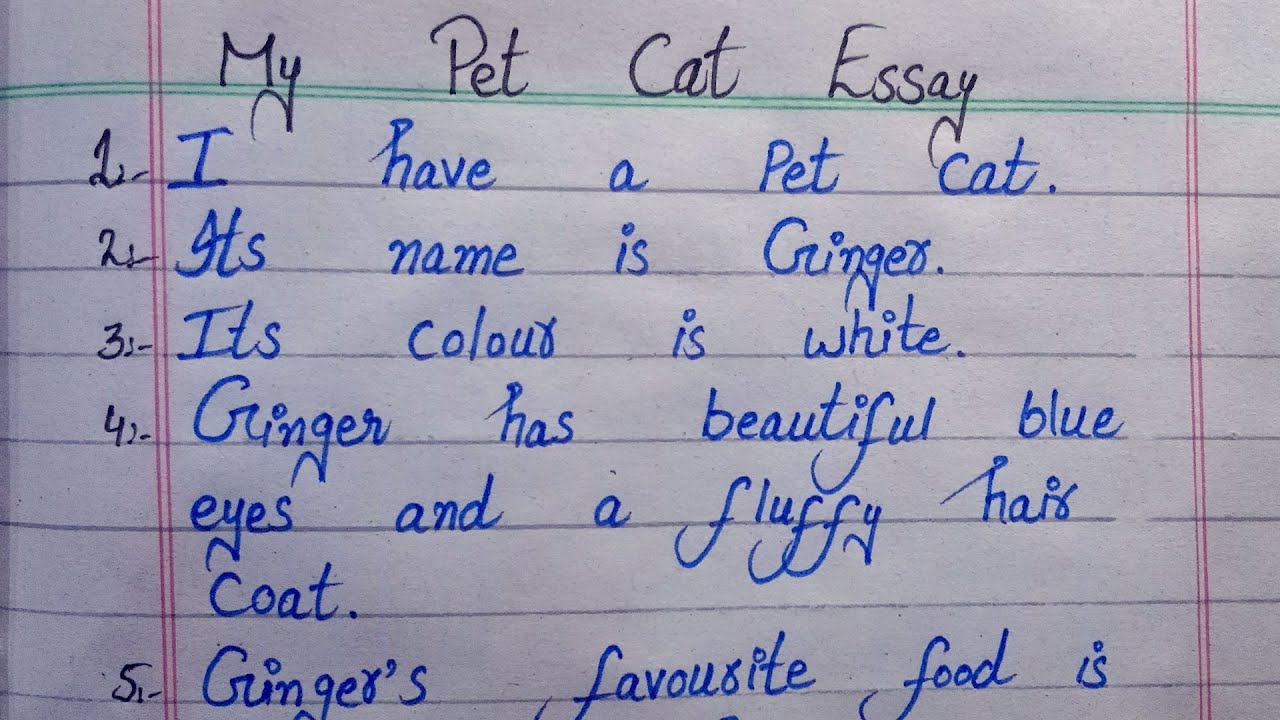 My Pet Cat Essay
1:- I have a Pet Cat.
2:- Its name is Ginger.
3:- Its colour is white.
4:- Ginger has beautiful blue
eyes and a fluffy hair
Coat.
5:- Ginger's favourite food is